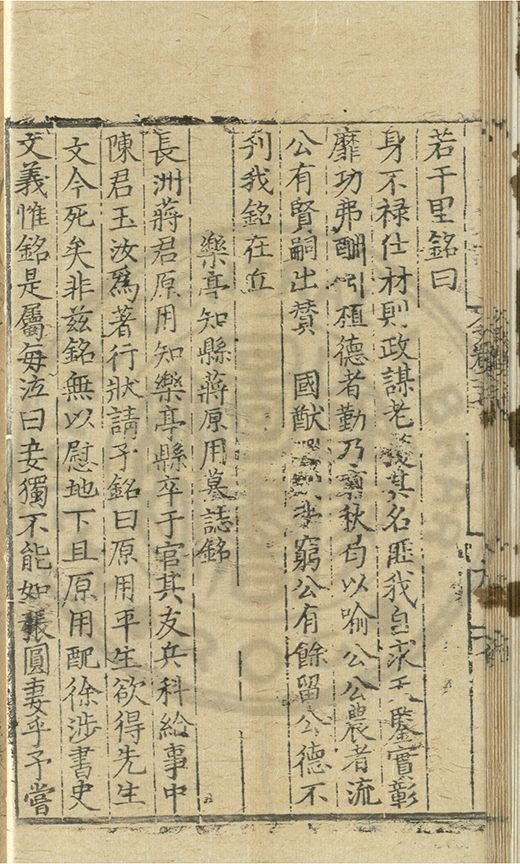 若干里銘曰
身不禄仕材則政謀老其名匪我自求天鑒實彰
靡功弗酬植德者勤乃秋旬以喻公公農者流
公有賢嗣出賛　國猷窮公有餘留公德不
刋我銘在丘
樂亭知縣蔣原用墓誌銘
長洲蔣君原用知樂亭縣卒于官其友兵科給事中
陳君玉汝爲著行狀請予銘曰原用平生欲得先生
文今死矣非兹銘無以慰地下且原用配徐涉書史
文義惟銘是屬每泣曰妾獨不能如張圓妻乎予嘗